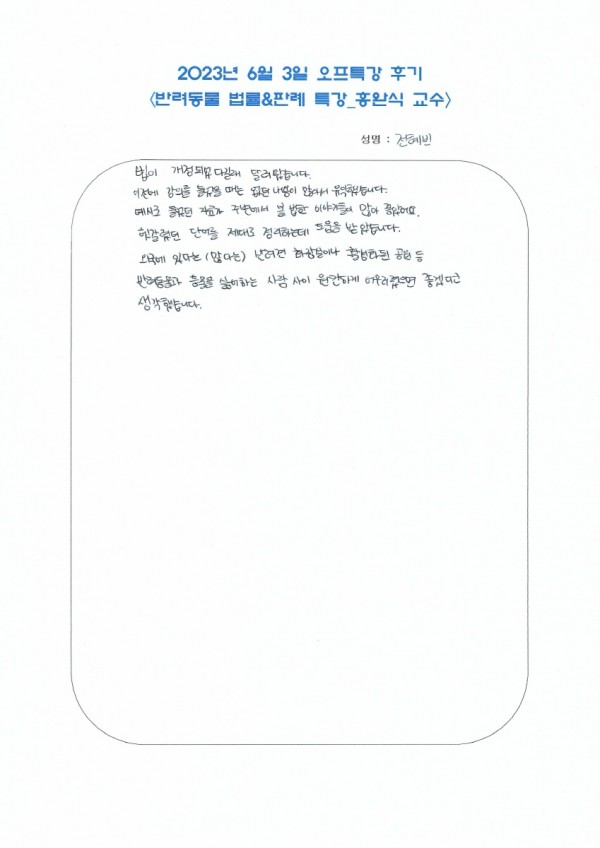 2023년 6월 3일 오프특강 후기
<반려동물 법률&판례 특강_홍완식 교수>
성명 : 전혜빈
법이 개정되고 다양해 달라졌습니다.
이전에 강의를 들었을 때는 없던 내용이 많아서 유익했습니다.
예시로 들었던 자료가 주변에서 볼 법한 이야기들이 많아 좋았어요.
헷갈렸던 단어를 제대로 정리하는데 도움을 받았습니다.
외국에 있다는 (많다는) 반려견 화장실이나 활성화된 공원 등
반려동물과 동물을 싫어하는 사람 사이 원만하게 어우러졌으면 좋겠다고
생각했습니다.